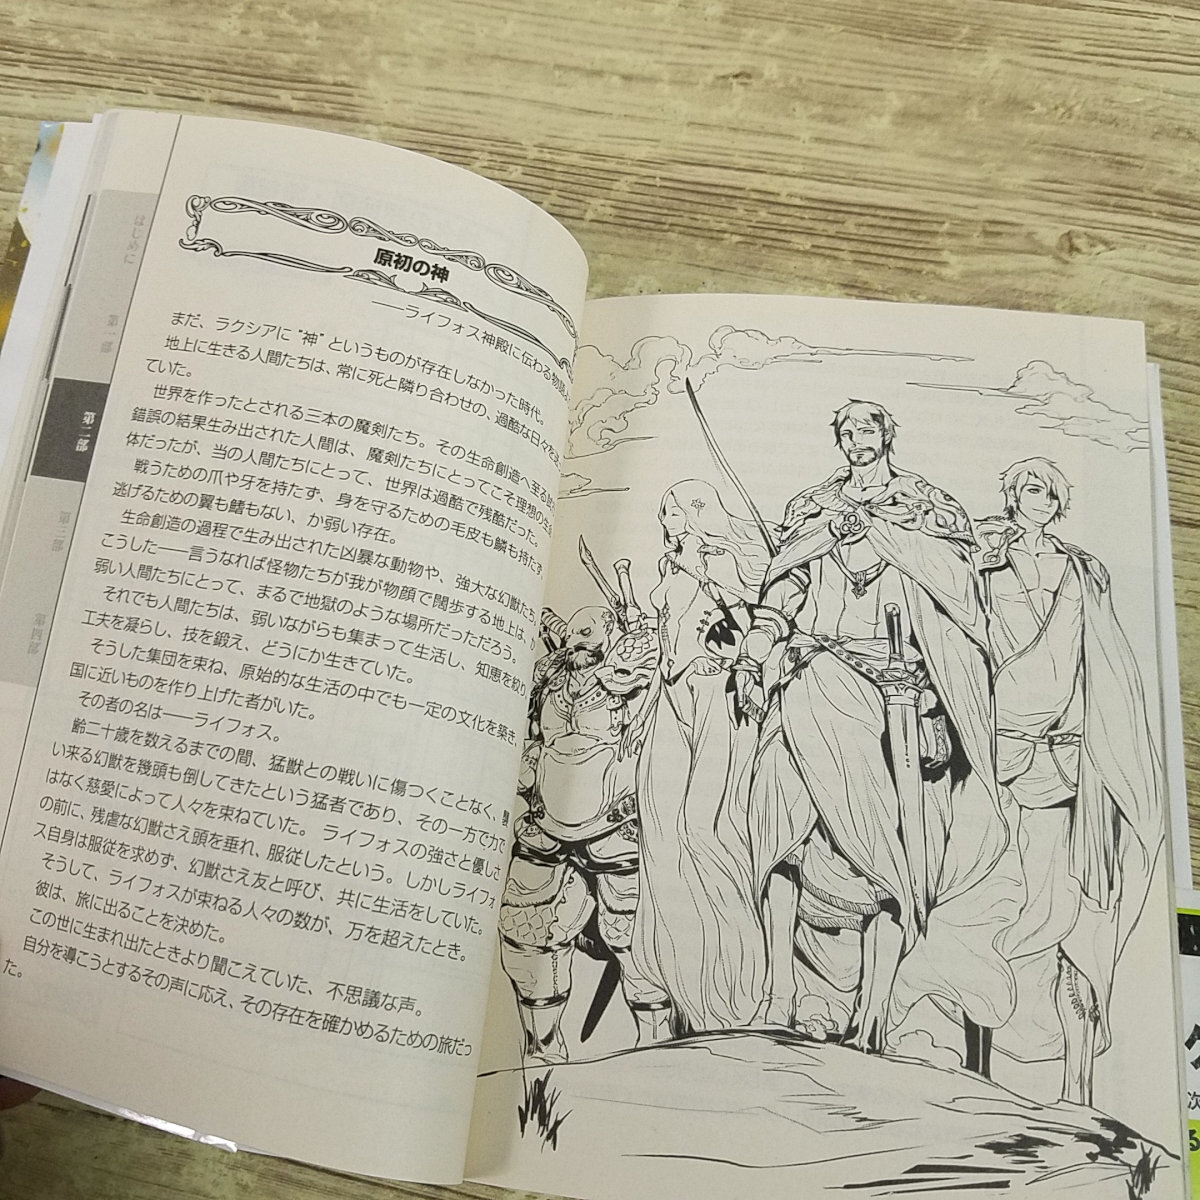 はじめに
第一部
第二部
第三部
第四部
原初の神
──ライフォス神殿に伝わる物語
まだ、ラクシアに“神”というものが存在しなかった時代。
地上に生きる人間たちは、常に死と隣り合わせの、過酷な日々を
ていた。
世界を作ったとされる三本の魔剣たち。その生命創造へ至る
錯誤の結果生み出された人間は、魔剣たちにとってこそ理想の
体だったが、当の人間たちにとって、世界は過酷で残酷だった。
戦うための爪や牙を持たず、身を守るための毛皮も鱗も持たず、
逃げるための翼も鰭もない、か弱い存在。
生命創造の過程で生み出された凶暴な動物や、強大な幻獣たち。
こうした──言うなれば怪物たちが我が物顔で闊歩する地上は、
弱い人間たちにとって、まるで地獄のような場所だっただろう。
それでも人間たちは、弱いながらも集まって生活し、知恵を絞り
工夫を凝らし、技を鍛え、どうにか生きていた。
そうした集団を束ね、原始的な生活の中でも一定の文化を築き、
国に近いものを作り上げた者がいた。
その者の名は──ライフォス。
齢二十歳を数えるまでの間、猛獣との戦いに傷つくことなく、
い来る幻獣を幾頭も倒してきたという猛者であり、その一方で力で
はなく慈愛によって人々を束ねていた。ライフォスの強さと優しさ
の前に、残虐な幻獣さえ頭を垂れ、服従したという。しかしライフォ
ス自身は服従を求めず、幻獣さえ友と呼び、共に生活をしていた。
そうして、ライフォスが束ねる人々の数が、万を超えたとき。
彼は、旅に出ることを決めた。
この世に生まれ出たときより聞こえていた、不思議な声。
自分を導こうとするその声に応え、その存在を確かめるための旅だっ
た。
次
る